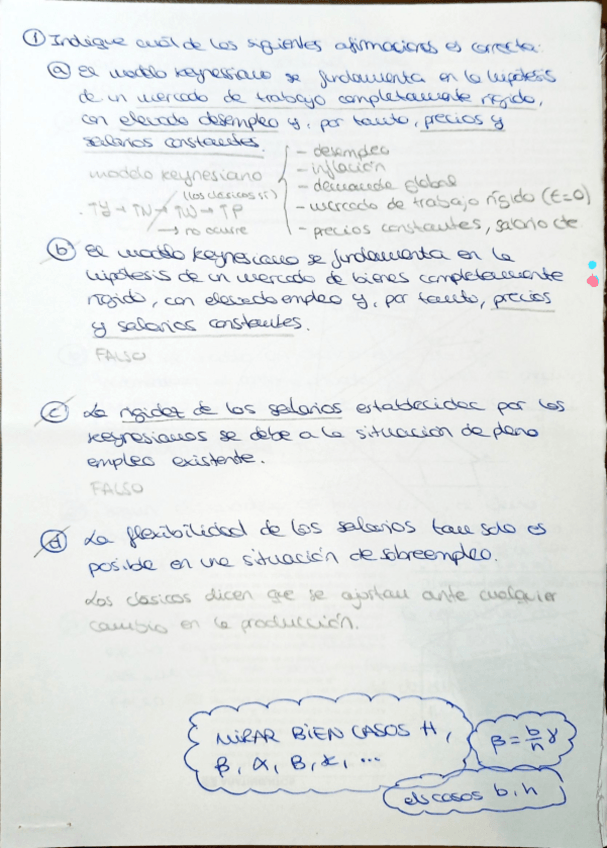 ① Indique cuál de las siguientes afirmaciones es correcta:
ⓐ El modelo keynesiano se fundamenta en la hipótesis
de un mercado de trabajo completamente rígido,
con elevado desempleo y, por tanto, precios y
salarios constantes.
modelo keynesiano
- desempleo
- inflación
- demanda global
- mercado de trabajo rígido (ε=0)
- precios constantes, salario cte
(los clásicos sí)
↑Y → ↑N → ↑W → ↑P
→ no ocurre
ⓑ El modelo keynesiano se fundamenta en la
hipótesis de un mercado de bienes completamente
rígido, con elevado empleo y, por tanto, precios
y salarios constantes.
FALSO
ⓒ La rigidez de los salarios establecida por los
keynesianos se debe a la situación de pleno
empleo existente.
FALSO
ⓓ La flexibilidad de los salarios tan solo es
posible en una situación de sobreempleo.
Los clásicos dicen que se ajustan ante cualquier
cambio en la producción.
MIRAR BIEN CASOS H,
β, α, B, ɣ, ...
β = b/h γ
casos b, h